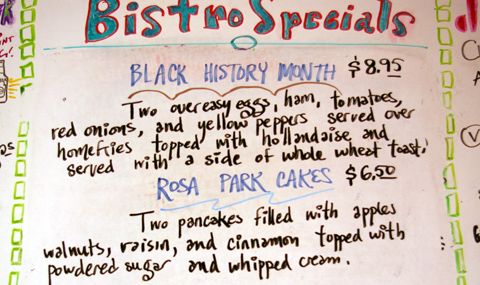 Bistro Specials
BLACK HISTORY MONTH $8.95
Two overeasy eggs, ham, tomatoes,
red onions, and yellow peppers served over
homefries topped with hollandaise and
served with a side of whole wheat toast.
ROSA PARK CAKES $6.50
Two pancakes filled with apples
walnuts, raisin, and cinnamon topped with
powdered sugar and whipped cream.